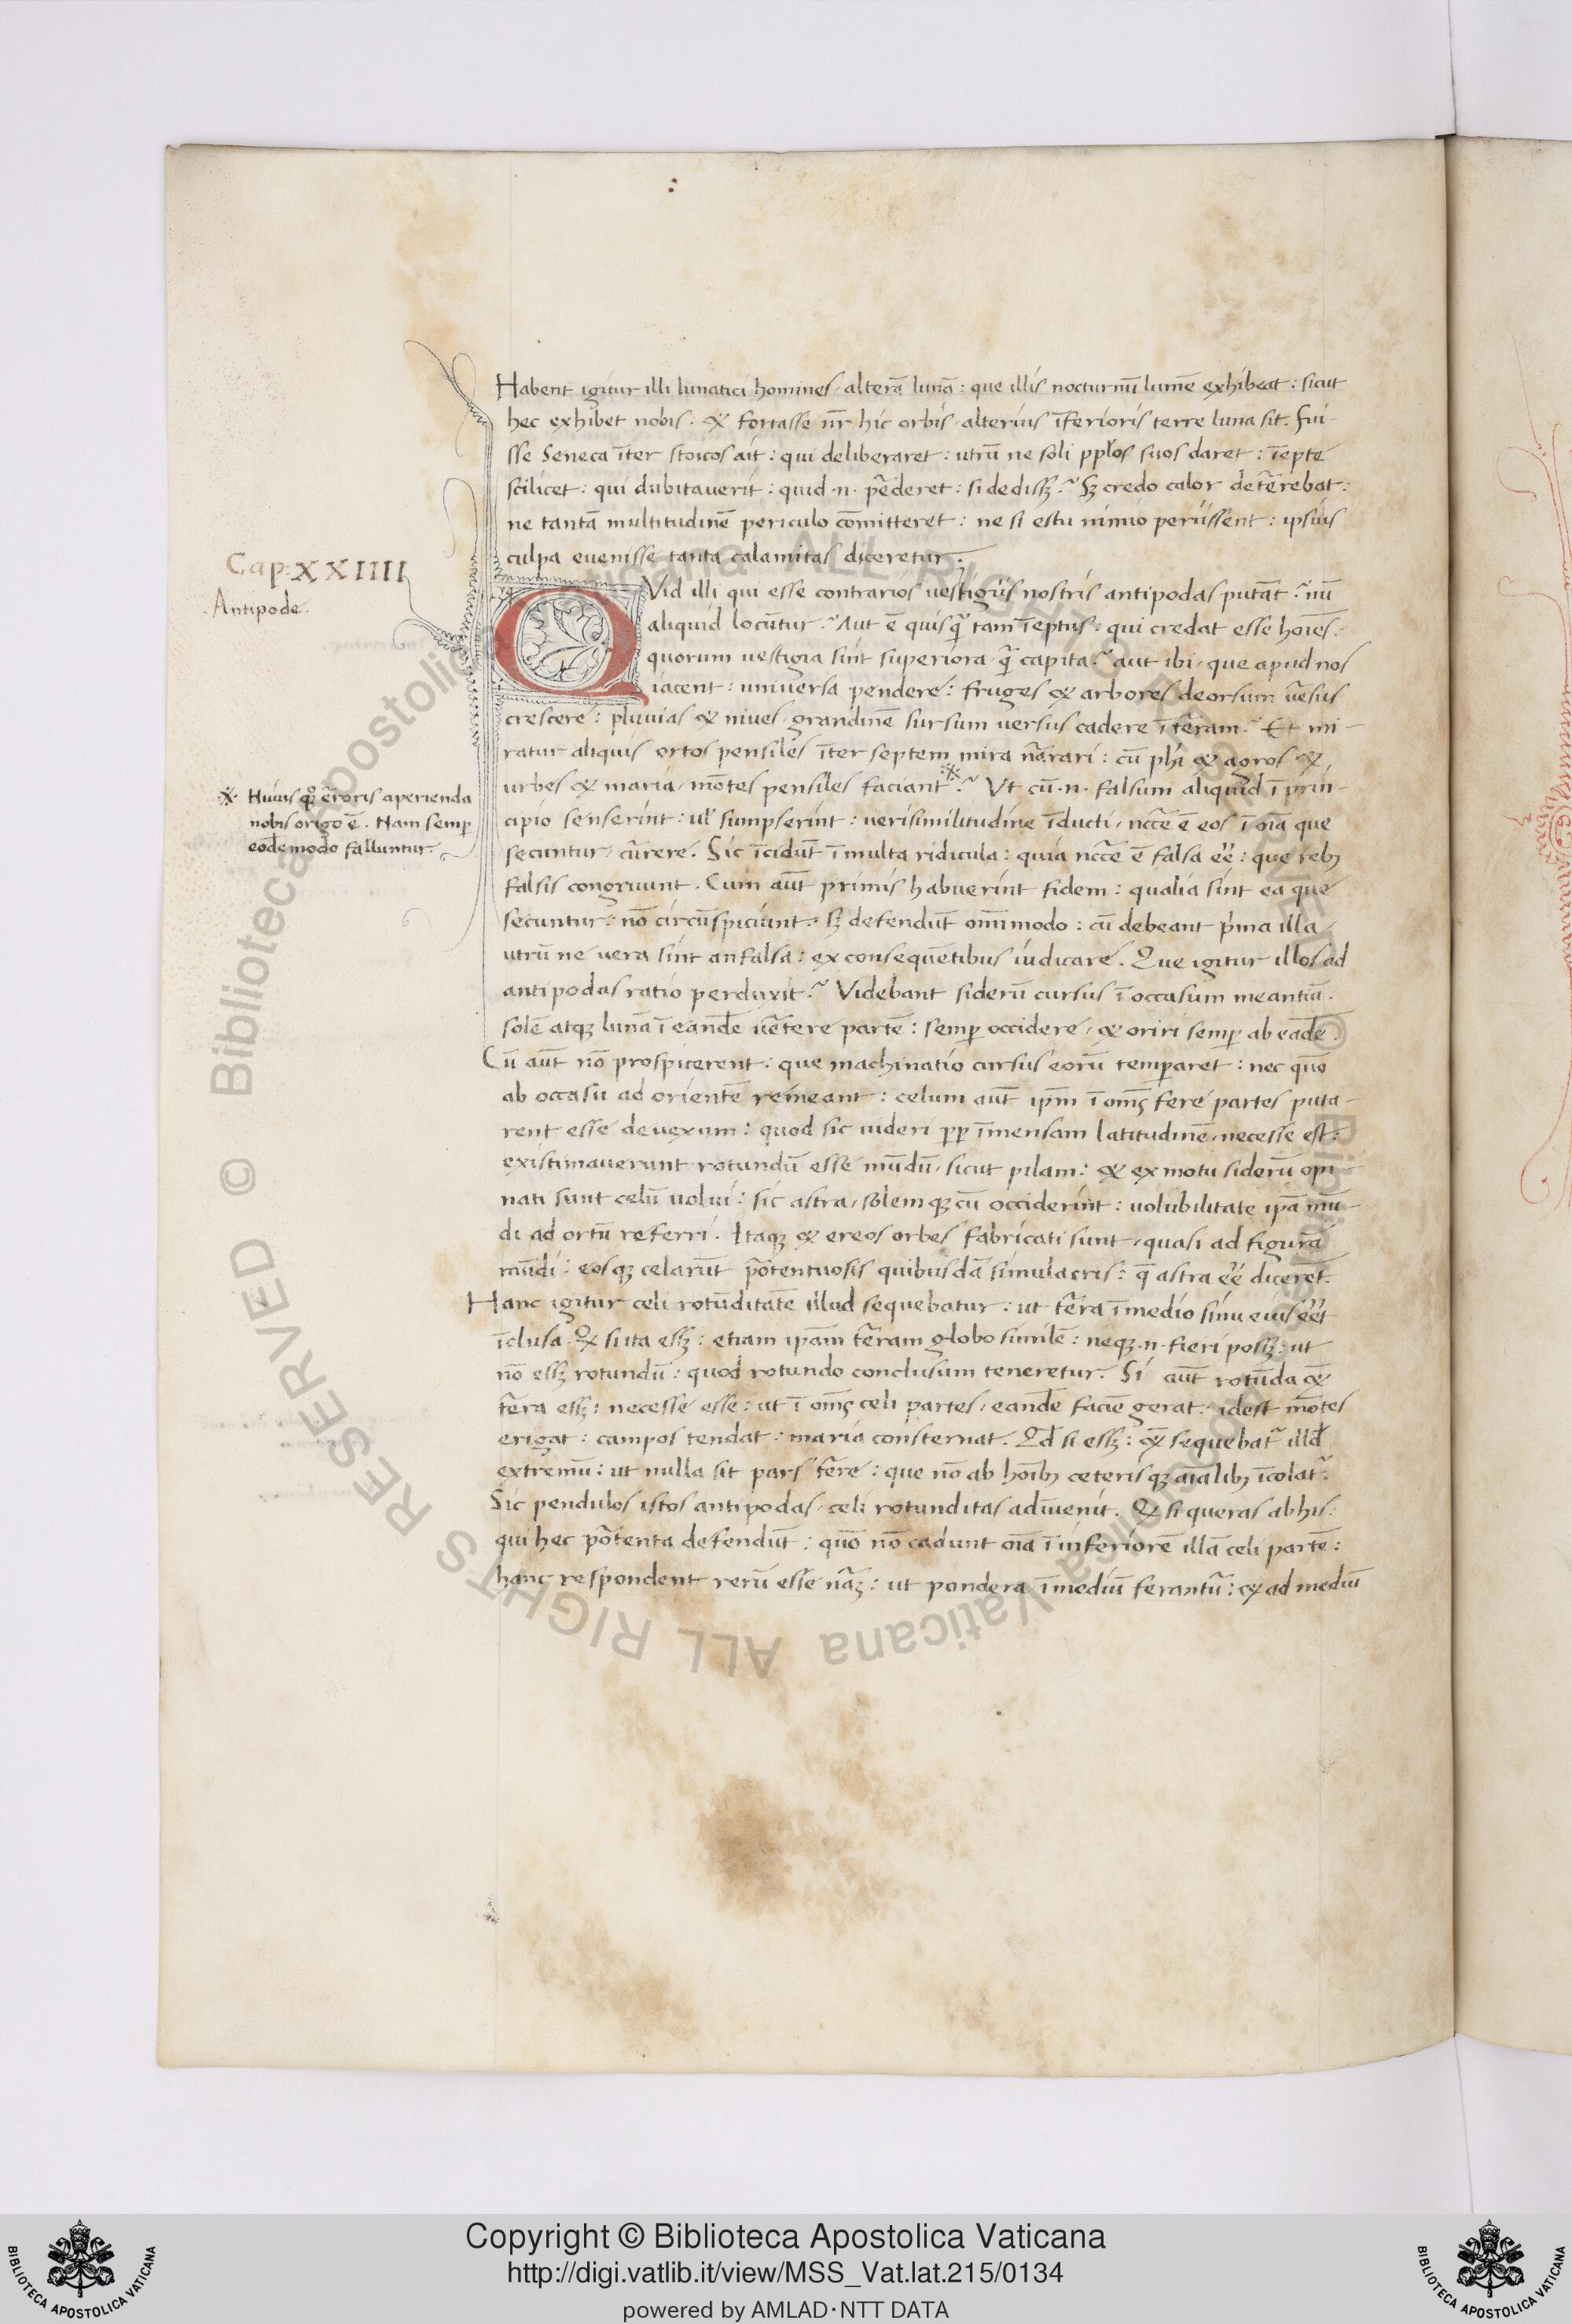 Habent igitur illi lunatici homines / alterā lunā : que illis nocturnū lumē exhibeat : sicut
hec exhibet nobis . & fortasse nr̄ hic orbis / alterius īferioris terre luna sit . Fui-
sse Seneca īter stoicos ait : qui deliberaret : utrū ne soli ppłos suos daret : īepte
scilicet : qui dubitaverit : quid .n. p̄deret : si dedissꝫ ? Sꝫ credo calor det̄rebat :
ne tantā multitudinē periculo cōmitteret : ne si estu nimio perüssent : ipsius
culpa evenisse tanta calamitas diceretur .
Cap. XXIIII
. Antipode .
QVid illi qui esse contrarios vestigiis nostris antipodas putāt ? nū
aliquid locūtur ? Aut ē quisq̄ tam īeptus : qui credat esse hoīes :
quorum vestigia sint superiora / q̄ capita ? aut ibi / que apud nos
iacent : universa pendere : fruges & arbores deorsum v̄sus
crescere : pluvias & nives / grandinē sursum versus cadere ī t̄ram ? Et mi-
ratur aliquis ortos pensiles īter septem mira nārari : cū phi & agros &
urbes & maria / mōtes pensiles faciant ? Ut cū .n. falsum aliquid ī prin-
※ Huius quoꝗ ērroris aperienda
nobis origo ē . Nam semꝑ
eodē modo falluntur .
cipio senserint : ul' sumpserint : verisimilitudine īducti / nccē ē eos ī oīa que
secuntur / cūrere . Sic īcidūt ī multa ridicula : quia nccē ē falsa eē : que rebꝫ
falsis congruunt . Cum aūt primis habuerint fidem : qualia sint ea que
secuntur : nō circūspiciunt : sꝫ defendūt omī modo : cū debeant p̄ma illa /
utrū ne vera sint an falsa : ex consequētibus iudicare . Que igitur illos ad
antipodas ratio perduxit ? Videbant siderū cursus ī occasum meantiū .
solē atqꝫ lunā ī eandē v̄tere partē : semꝑ occidere / & oriri semꝑ ab eadē .
Cū aūt nō prospicerent : que machinatio cursus eorū temꝑaret : nec quō
ab occasu ad orientē remeant : celum aūt ip̄m ī om̄s fere partes puta-
rent esse devexum : quod sic videri ꝓꝑ īmensam latitudinē / necesse est :
existimaverunt rotundū esse mūdū / sicut pilam : & ex motu siderū opi-
nati sunt celū volvi : sic astra / solemqꝫ cū occiderint : volubilitate ip̄a mū-
di ad ortū referri . Itaqꝫ & ereos orbes fabricati sunt / quasi ad figurā
mūdi : eosqꝫ celarūt p̄otentuosis quibusdā simulacris : q̄ astra eē dicerēt .
Hanc igitur celi rotūditatē illud sequebatur : ut t̄ra ī medio sinu eius eēt
īclusa . & si ita essꝫ : etiam ip̄am t̄ram globo similē : neqꝫ .n. fieri possꝫ : ut
nō essꝫ rotundū : quod rotundo conclusum teneretur . Si aūt rotūda &
t̄ra essꝫ : necesse esse : ut ī om̄s celi partes / eandē faciē gerat : idest mōtes
erigat : campos tendat : maria consternat . Qd si essꝫ : & sequebat᷑ illd
extremū : ut nulla sit pars t̄re : que nō ab hoībꝫ ceterisqꝫ aīalibꝫ īcolat᷑ .
Sic pendulos istos antipodas / celi rotunditas adīvenit . Et si queras ab his :
qui hec p̄otenta defendūt : quō nō cadunt oīa ī inferiorē illā celi partē :
hanc respondent rerū esse nāꝫ : ut pondera ī mediū ferantū : & ad mediū
© Biblioteca Apostolica Vaticana ALL RIGHTS RESERVED
Copyright © Biblioteca Apostolica Vaticana
http://digi.vatlib.it/view/MSS_Vat.lat.215/0134
powered by AMLAD·NTT DATA
BIBLIOTECA APOSTOLICA VATICANA
BIBLIOTECA APOSTOLICA VATICANA